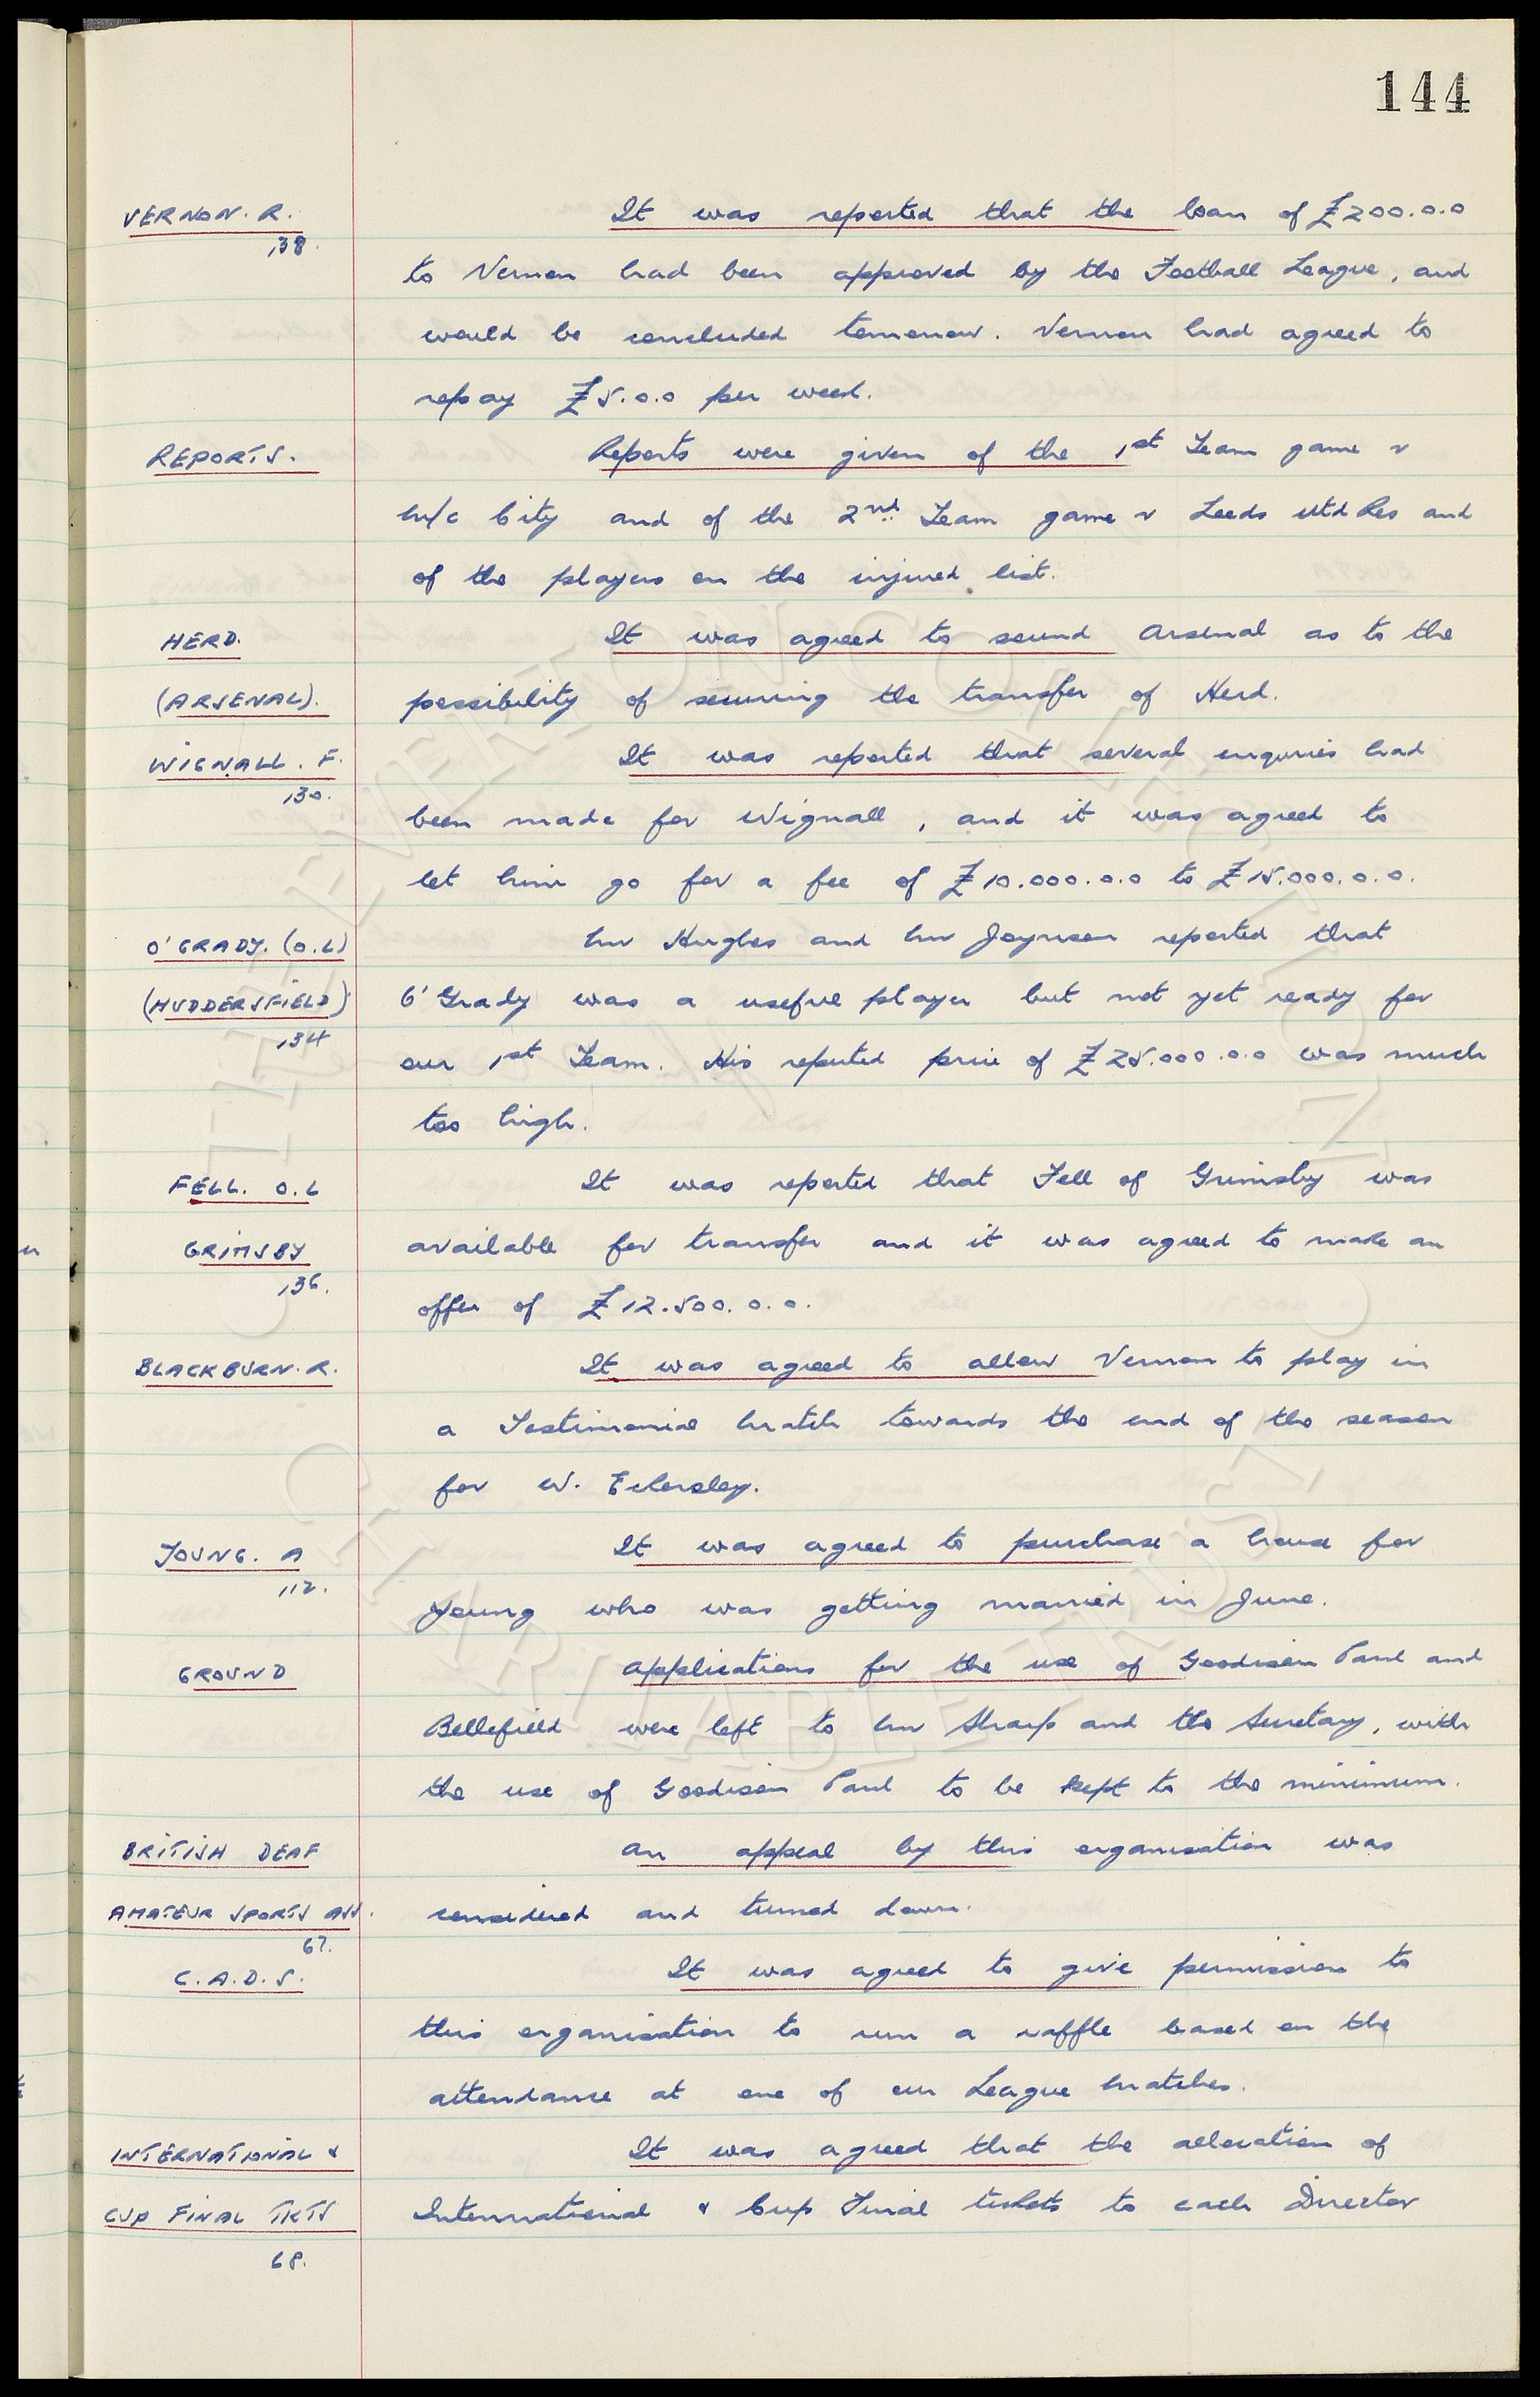 144
VERNON. R.
138.
It was reported that the loan of £200.0.0
to Vernon had been approved by the Football League, and
would be concluded tomorrow. Vernon had agreed to
repay £5.0.0 per week.
REPORTS.
Reports were given of the 1st Team game v
M/c City and of the 2nd Team game v Leeds Utd Res and
of the players on the injured list.
HERD.
(ARSENAL).
It was agreed to sound Arsenal as to the
possibility of securing the transfer of Herd.
WIGNALL. F.
130.
It was reported that several enquiries had
been made for Wignall, and it was agreed to
let him go for a fee of £10.000.0.0 to £15.000.0.0.
O'GRADY. (O.L)
(HUDDERSFIELD)
134
Mr Hughes and Mr Joynson reported that
O'Grady was a useful player but not yet ready for
our 1st Team. His reputed price of £25.000.0.0 was much
too high.
FELL. O.L
GRIMSBY
136.
It was reported that Fell of Grimsby was
available for transfer and it was agreed to make an
offer of £12.500.0.0.
BLACKBURN. R.
It was agreed to allow Vernon to play in
a Testimonial Match towards the end of the season
for W. Eckersley.
YOUNG. A
112.
It was agreed to purchase a house for
Young who was getting married in June.
GROUND
Applications for the use of Goodison Park and
Bellefield were left to Mr Sharp and the Secretary, with
the use of Goodison Park to be kept to the minimum.
BRITISH DEAF
AMATEUR SPORTS ASS.
67.
An appeal by this organisation was
considered and turned down.
C.A.D.S.
It was agreed to give permission to
this organisation to run a raffle based on the
attendance at one of our League Matches.
INTERNATIONAL &
CUP FINAL TKTS
68.
It was agreed that the allocation of
International & Cup Final tickets to each Director
THE EVERTON COLLECTION
CHARITABLE TRUST